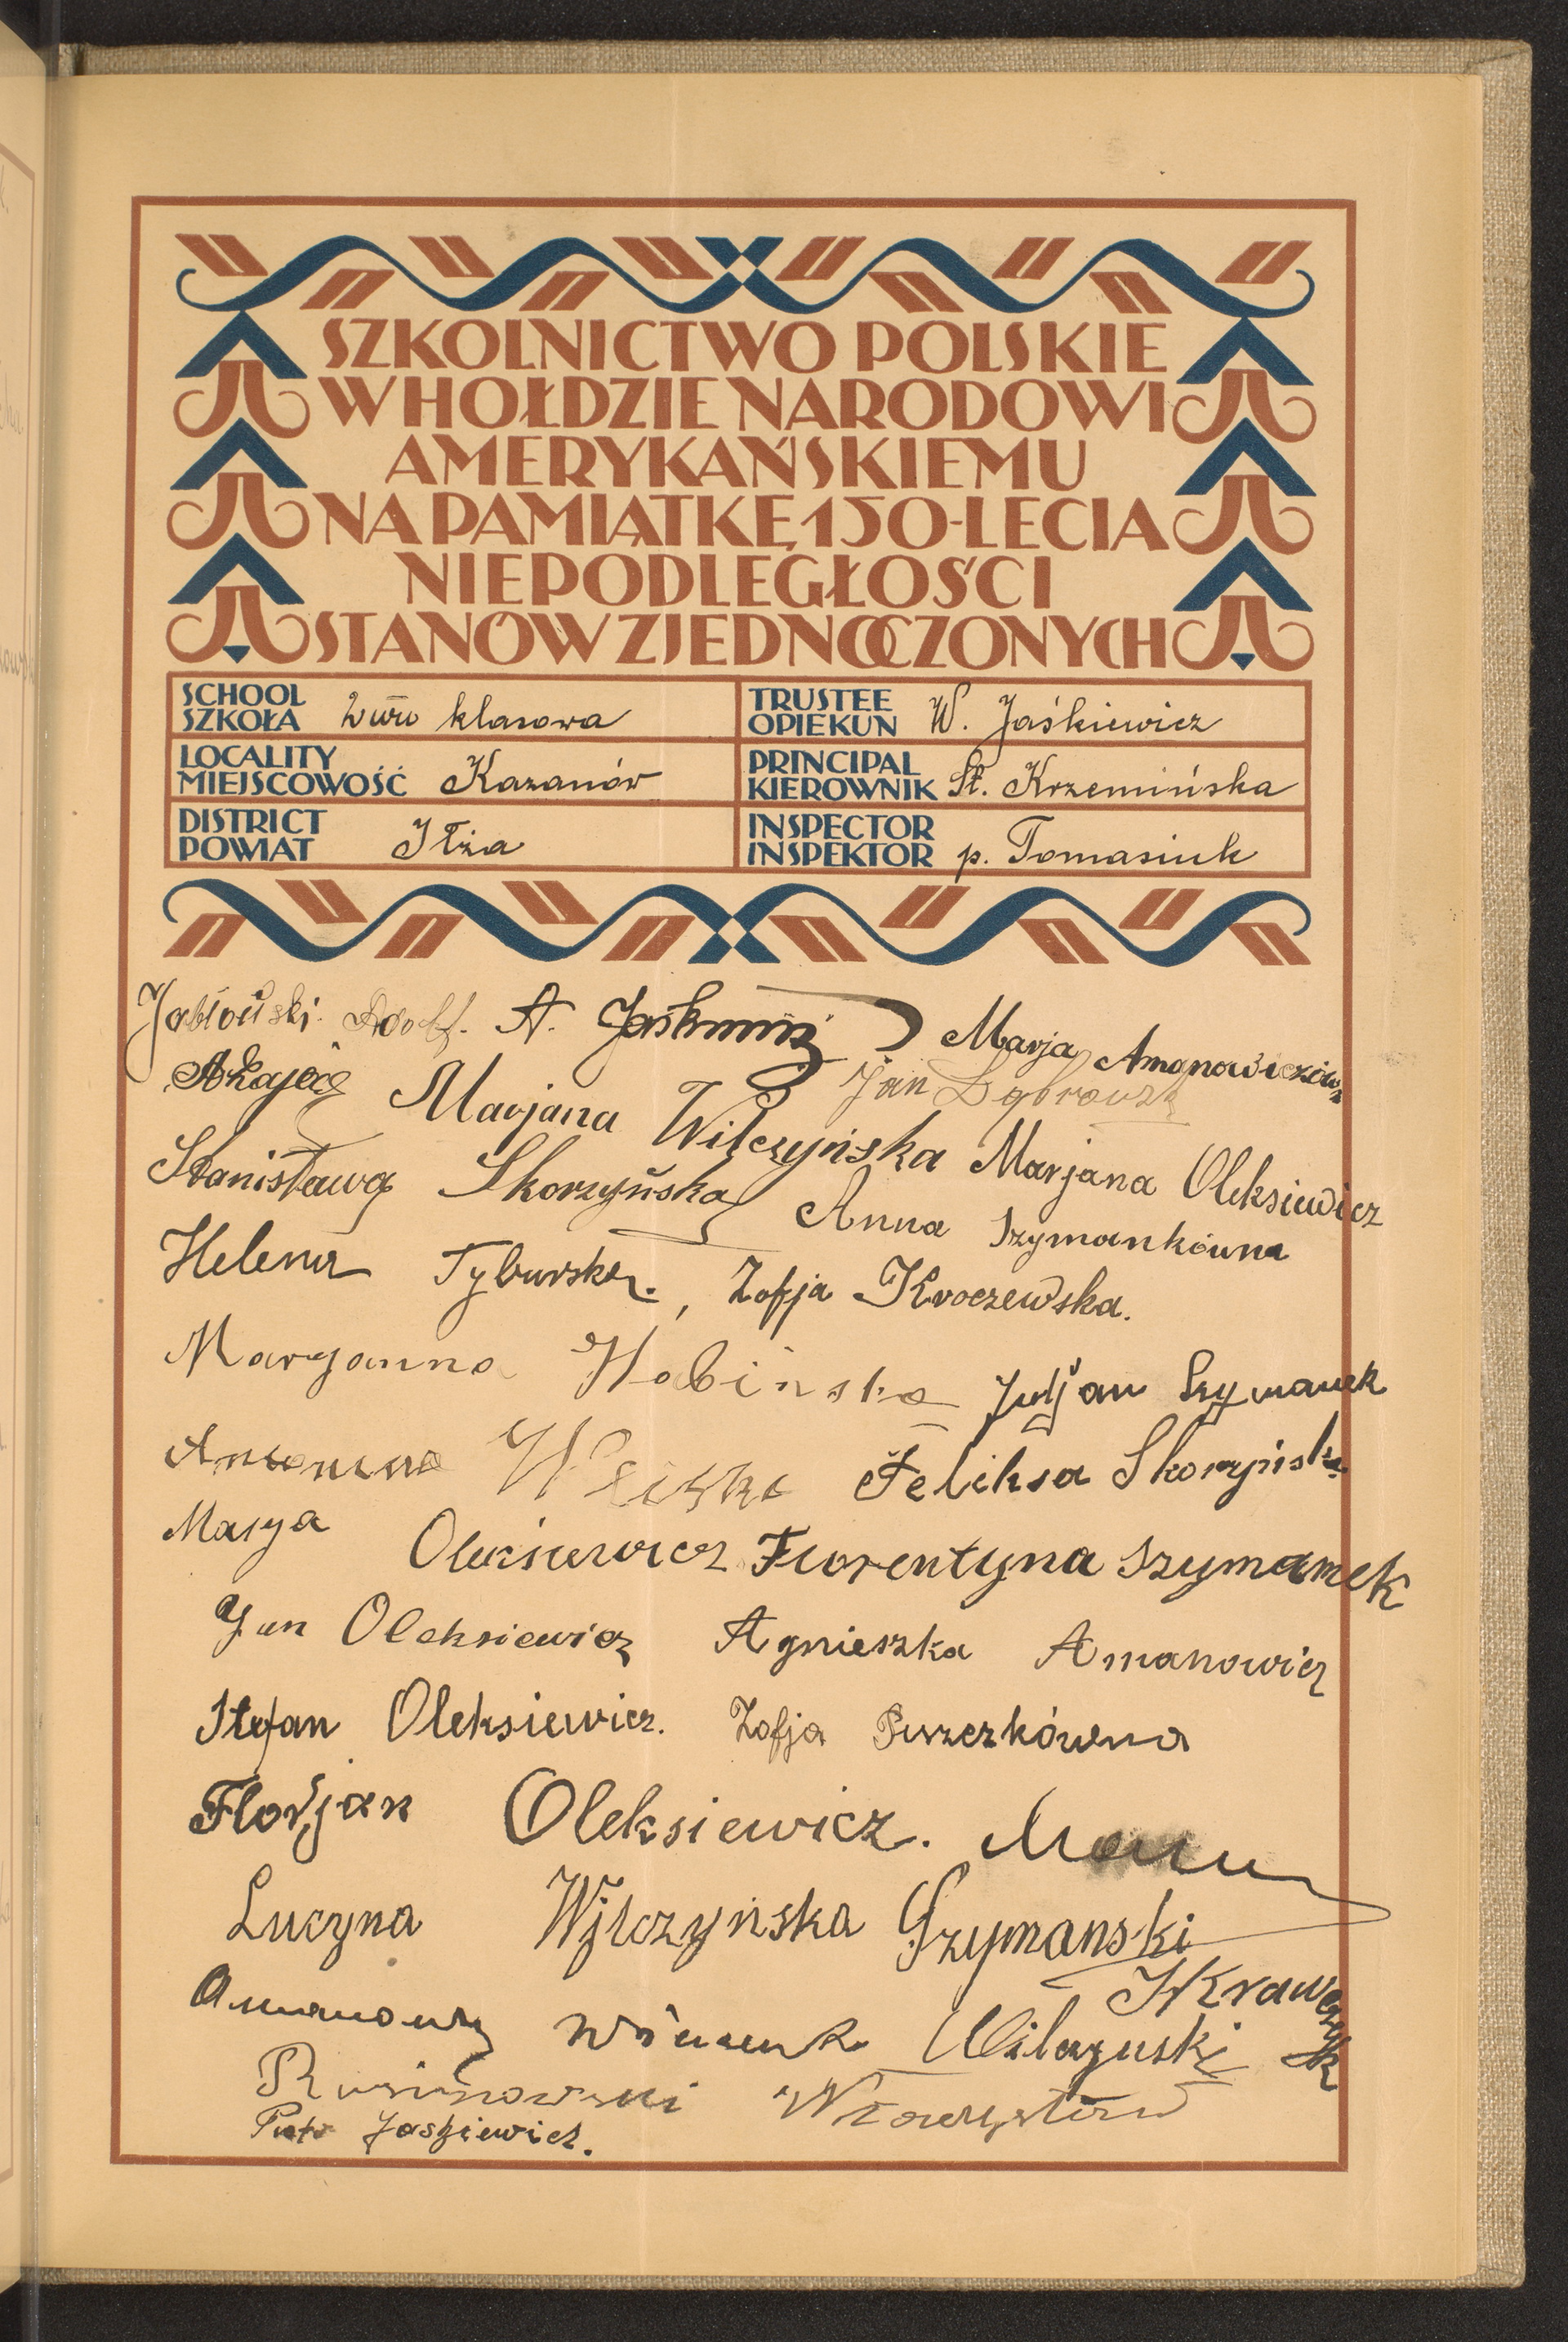 SZKOLNICTWO POLSKIE
W HOŁDZIE NARODOWI
AMERYKAŃSKIEMU
NA PAMIĄTKĘ 150-LECIA
NIEPODLEGŁOŚCI
STANÓW ZJEDNOCZONYCH
SCHOOL
SZKOŁA klasowa
TRUSTEE
OPIEKUN W. Jaśkiewicz
LOCALITY
MIEJSCOWOŚĆ Kazanów
PRINCIPAL
KIEROWNIK St. Krzemińska
DISTRICT
POWIAT Iłża
INSPECTOR
INSPEKTOR p. Tomasiuk
Jabłoński Adolf. A. Marja Amanowiczówn
Jan
Marjana Wilczyńska Marjana Oleksiewicz
Stanisława Skorzyńska Anna Szymankówna
Helena Tyburska. , Zofja Kroczewska.
Maryanna Habinska Juljan Szymanek
Antonina Feliksa Skorzyńska
Marya Oleksiewicz Florentyna Szymanek
Jan Oleksiewicz Agnieszka Amanowicz
Stefan Oleksiewicz. Zofja Puszczkówna
Florjan Oleksiewicz.
Lucyna Wilczyńska Szymanski
Krawczyk
Wilczyński
Piotr Jaskiewicz.